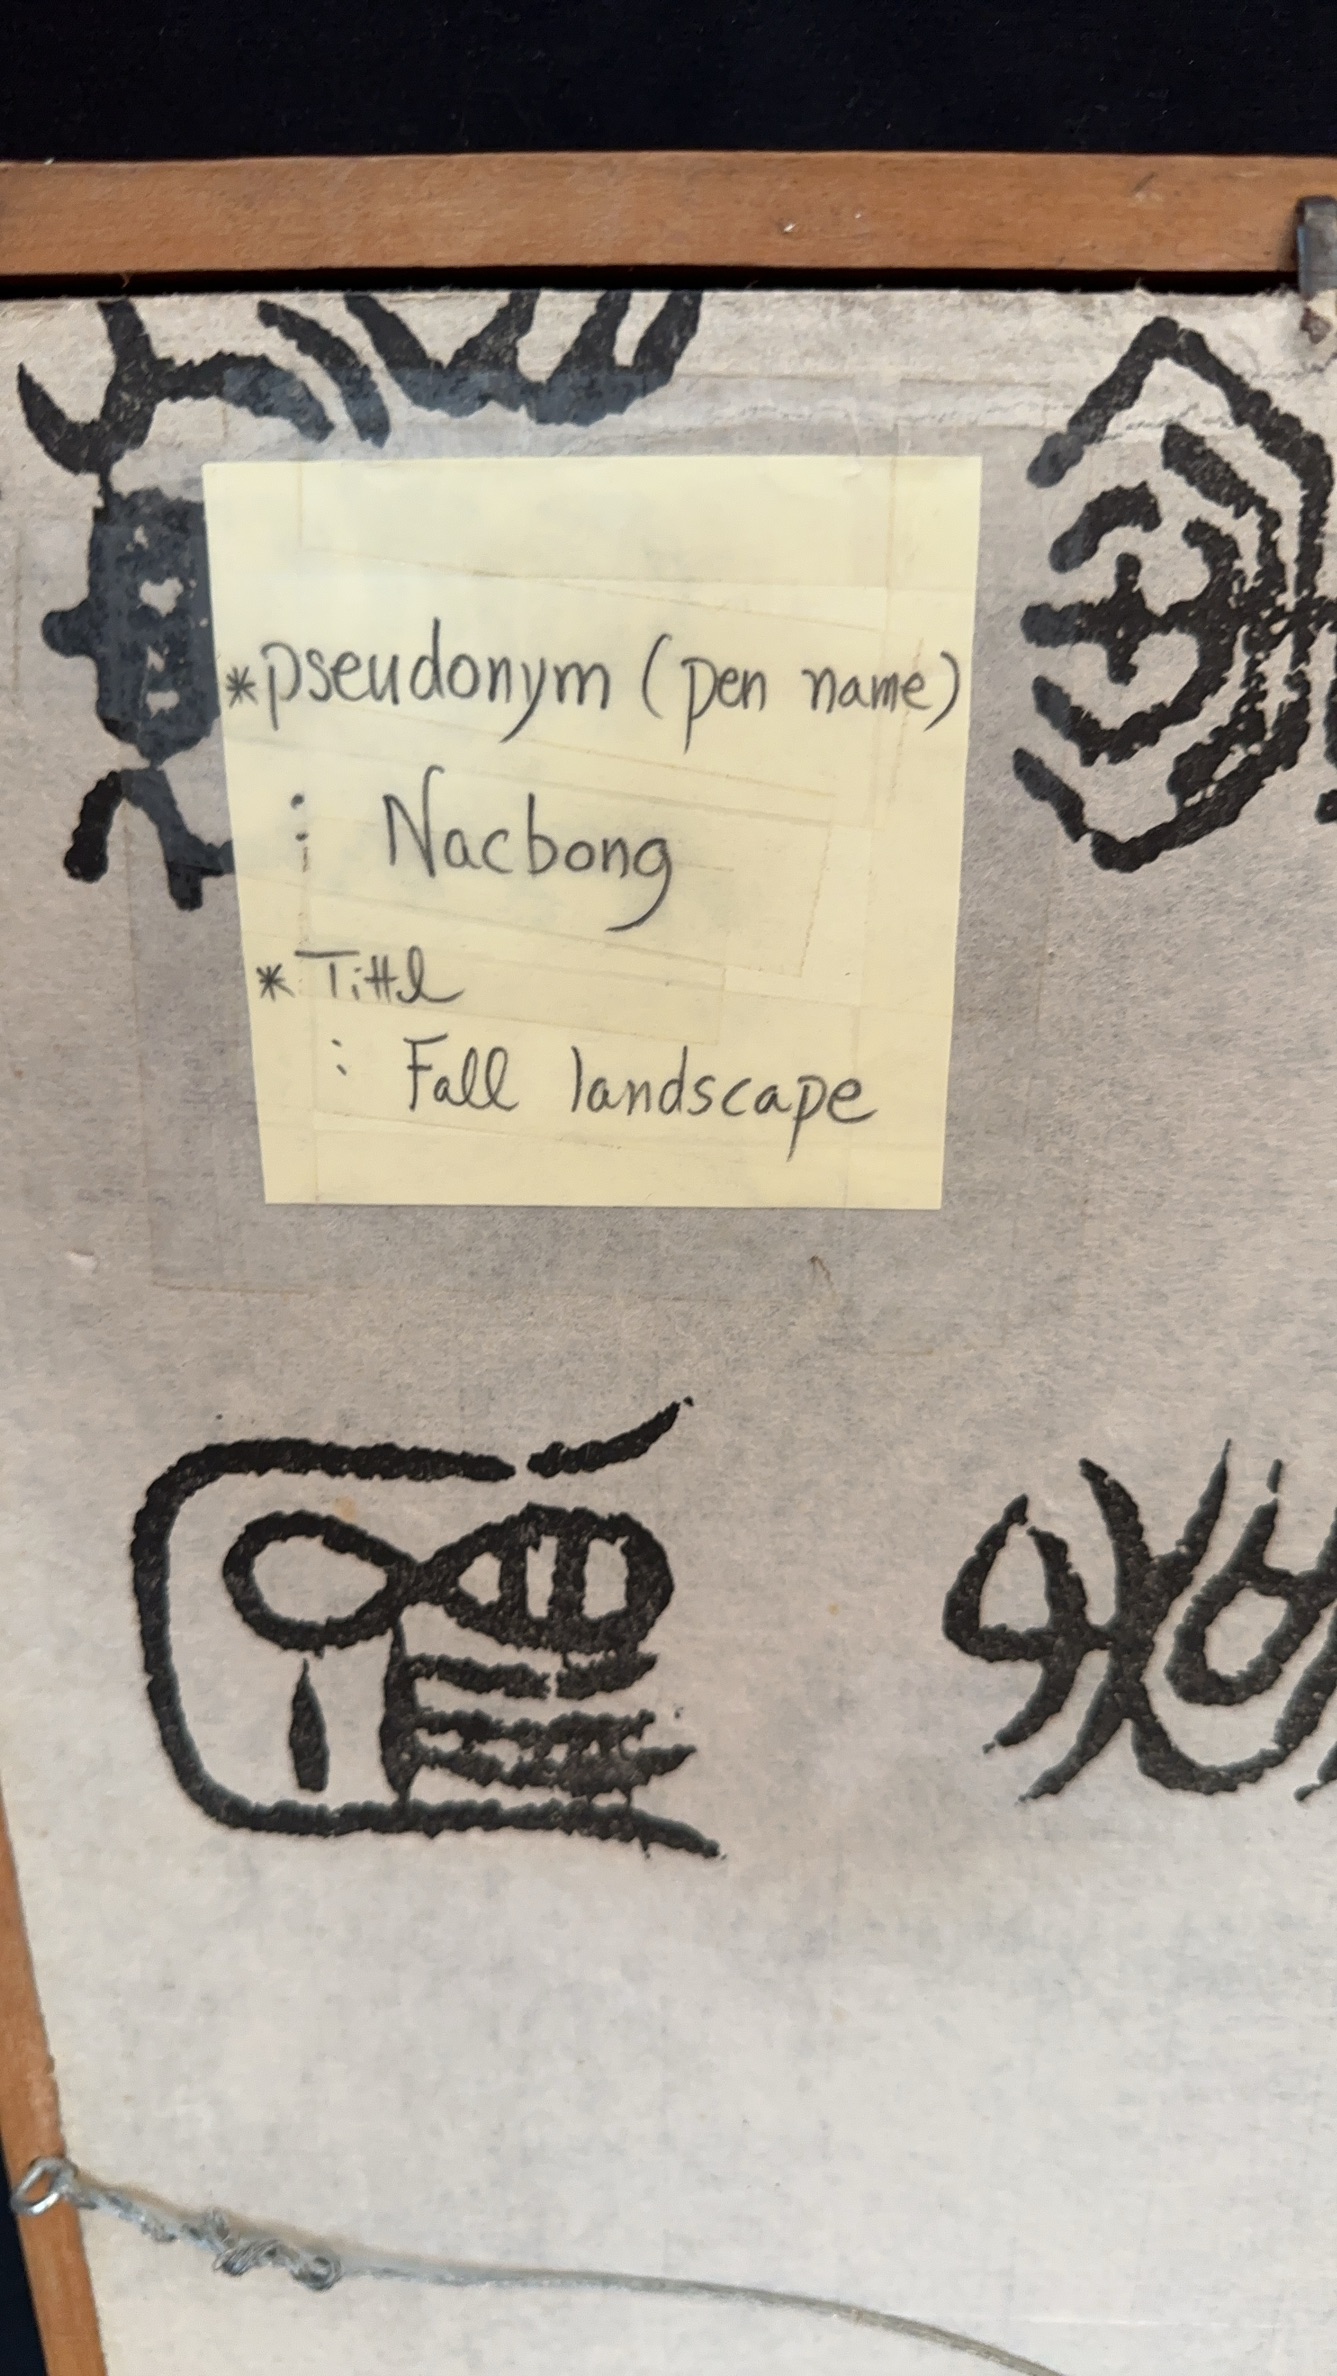 *pseudonym (pen name)
: Nacbong
*Tittl
: Fall landscape